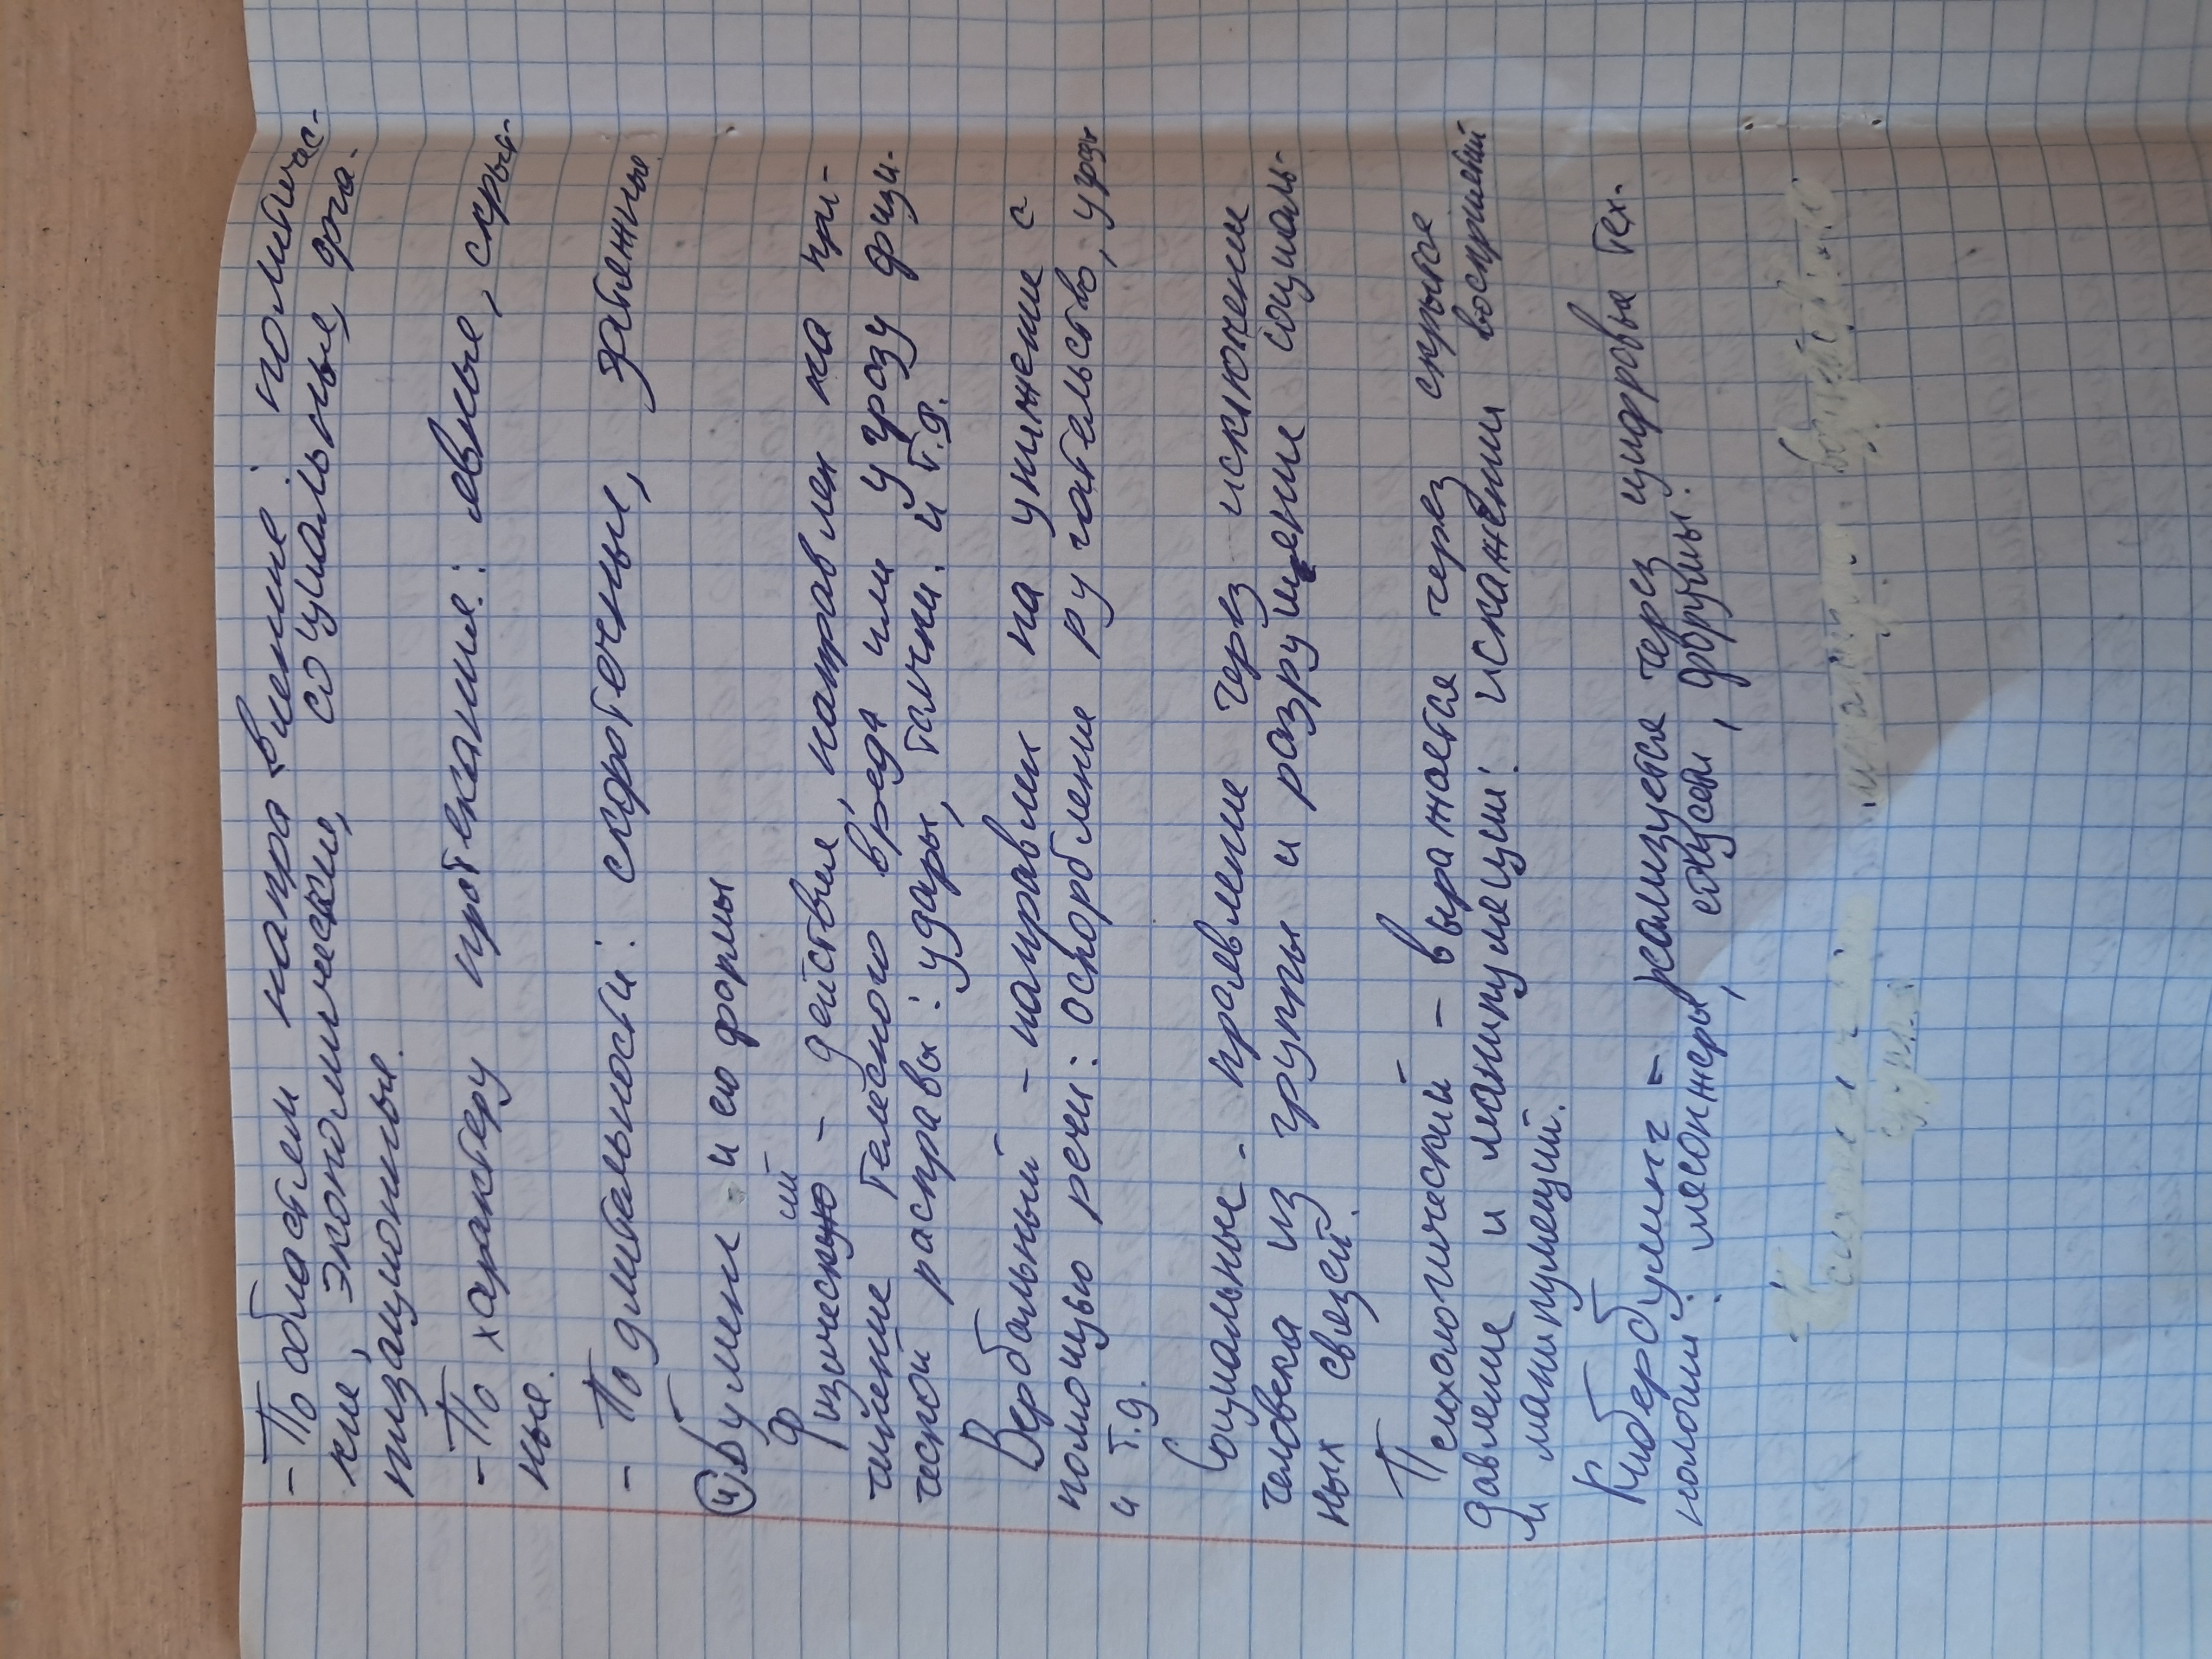 - По областям направления: политичес-
кие, экономические, социальные, орга-
низационные.
- По характеру протекания: явные, скры-
ные.
- По длительности: скоротечные, затяжные
④ Булинг и его формы
Физический - действия, направлен на при-
чинение телесного вреда или угрозу физи-
ческой расправы: удары, толчки. и т.д.
Вербальный - направлен на унижение с
помощью речи: оскорбление ругательство, угрозы
и т.д.
Социальные - проявление через исключение
человека из группы и разрушение социаль-
ных связей.
Психологический - выражается через скрытое
давление и манипуляции: искажении восприятий
и манипуляций.
Кибербулинг - реализуется через цифровые тех-
нологии: мессенжеры, соцсети, форумы.